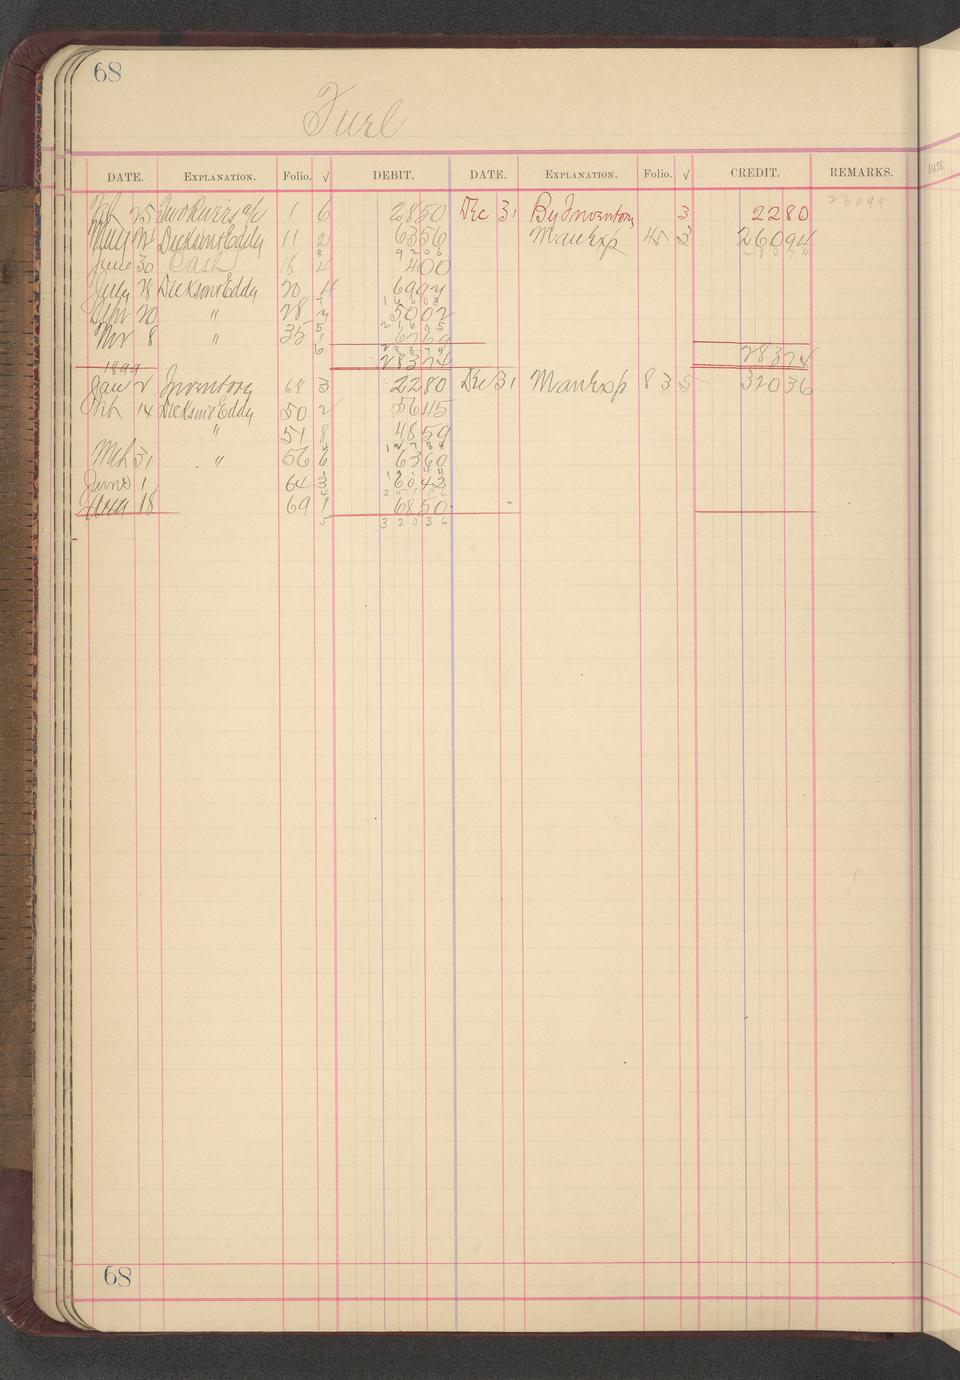 68
Fuel
DATE. EXPLANATION. Folio. √ DEBIT. DATE. EXPLANATION. Folio. √ CREDIT. REMARKS.
Feb 25 Two Rivers a/c 1 6 2850 Dec 31 By Inventory 3 2280 26094
May 24 Dickson & Eddy 11 2 6356 Man Exp 45 3 26094
9206 28374
June 30 Cash 16 4 400
July 28 Dickson & Eddy 20 4 6997
16603
20 " 28 5002
21605
Nov 8 " 35 1 6769
28374 28374
1899
Jan 2 Inventory 68 3 2280 Dec 31 Man Exp 83 5 32036
Feb 14 Dickson & Eddy 50 2 5645
" 51 8 4859
Mch 31 " 56 6 6360
June 1 64 3 6042
18 69 1 6850
32036
68
DATE